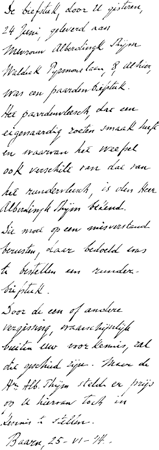 De biefstuk, door U gisteren,
24 Juni, geleverd aan
Mevrouw Alberdingk Thijm
Waldeck Pyrmontlaan, 8 alhier,
was een paardenbiefstuk.
Het paardenvleesch, dat een
eigenaardig zoeten smaak heeft
en waarvan het weefsel
ook verschilt van dat van
het rundvleesch, is den Heer
Alberdingk Thijm bekend.
Die moet op een misverstand
berusten, daar bedoeld was
te bestellen een runder-
biefstuk.
Door de een of andere
vergissing, waarschijnlijk
buiten uw voorkennis, zal
die geschied zijn. Maar de
Hr. Alb. Thijm stelde er prijs
op U hiervan toch in
kennis te stellen.
Baarn, 25-VI-14.